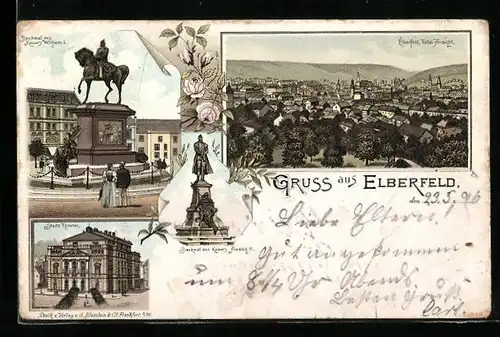 Denkmal des
Kaisers Wilhelm I.
Elberfeld, Total-Ansicht.
GRUSS aus ELBERFELD.
den 23.5.96
Liebe Eltern!
Gut angekommen
um 8¼ Uhr Abends.
Besten Gruß
Carl.
Denkmal des Kaisers Friedrich III.
Stadt-Theater.
Druck u. Verlag v. Blümlein & Co. Frankfurt a/M.